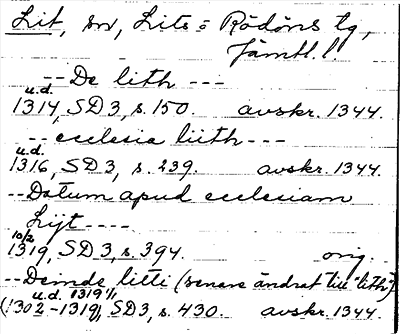 Lit, sn, Lits o Rödöns tg,
Jämtl. l.
-- De lith ---
u.d.
1314, SD 3, s. 150. avskr. 1344.
-- ecclesia liith ---
u.d.
1316, SD 3, s. 239. avskr. 1344.
-- Datum apud ecclesiam
Lijt ----
10/2
1319, SD 3, s. 394. orig.
-- Deinde litti (senare ändrat till "lith")
u.d. 1319 1/1
(1302-1319), SD 3, s. 430. avskr. 1344.